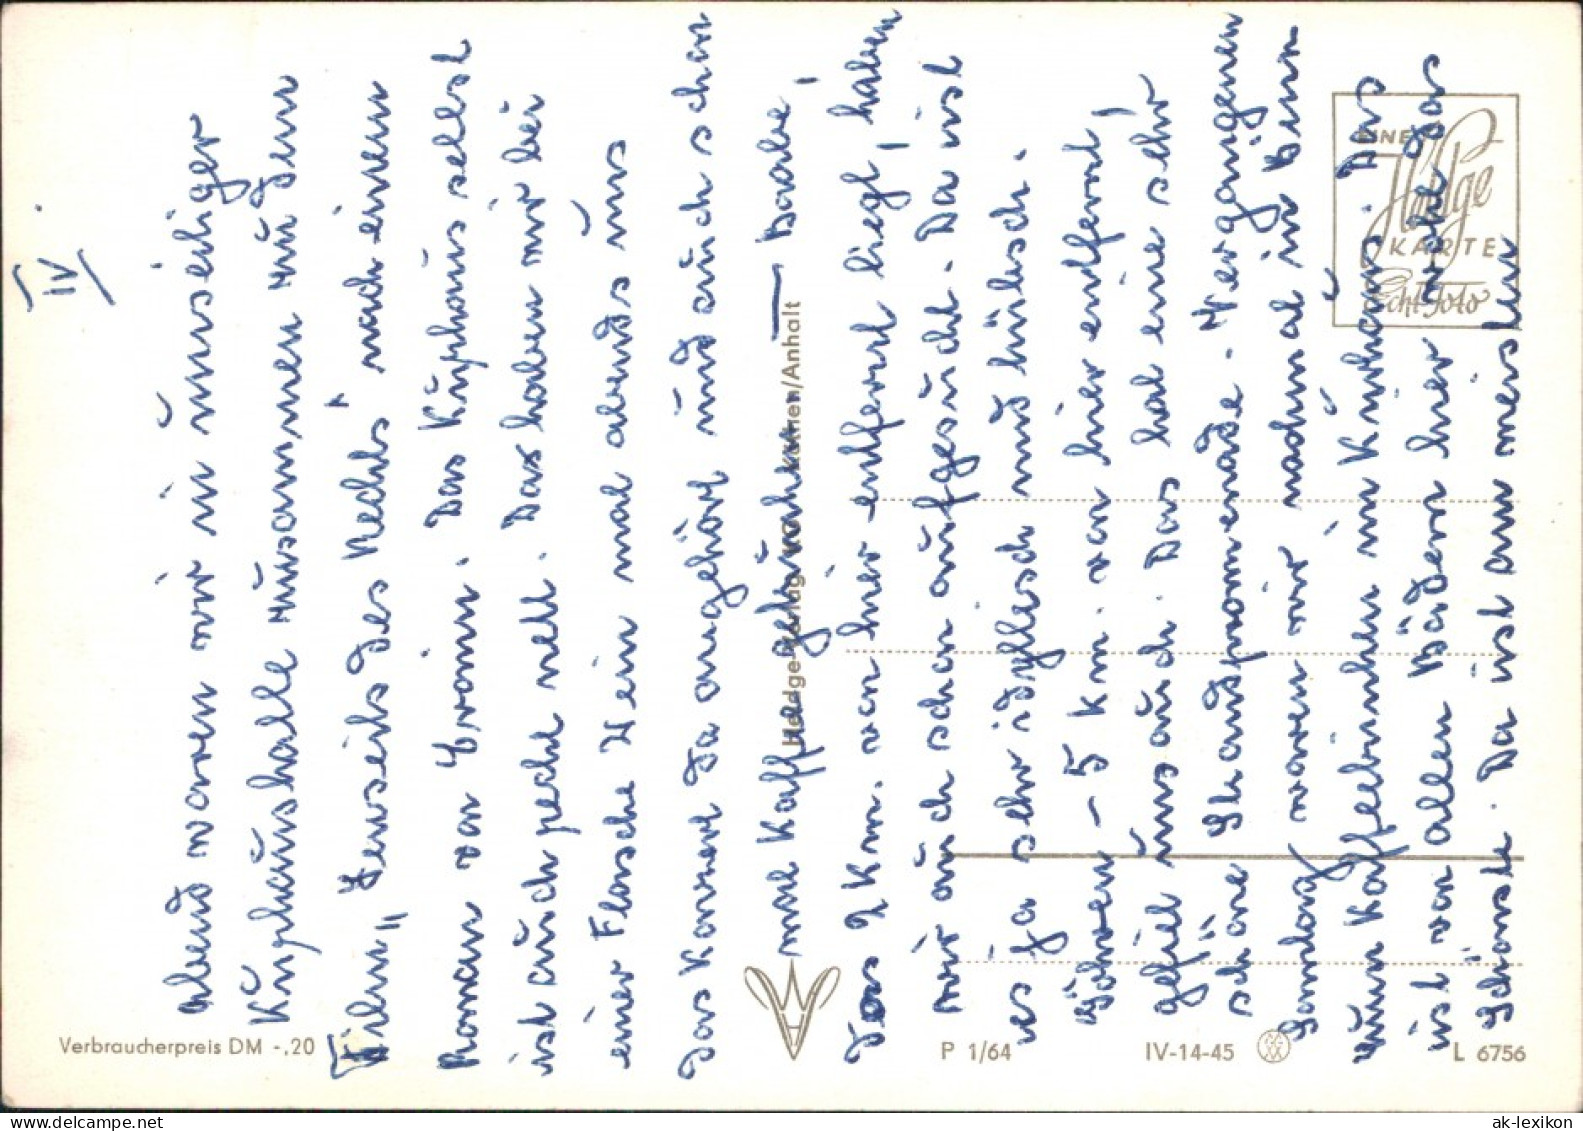 IV
Abend waren wir in unseliger
Kurhaushalle zusammen zu dem
Film „Jenseits des Rechts" nach einem
Roman von Cronin. Das Kurhaus selbst
ist auch recht nett. Da haben wir bei
einer Flasche Wein mal abends uns
das Konzert da angehört und auch schon
mal Kaffee getrunken. Baabe,
das 2 km. von hier entfernt liegt, haben
wir auch schon aufgesucht. Da ist
es ja sehr idyllisch und hübsch.
Göhren – 5 km. von hier entfernt,
gefiel uns auch. Das hat eine sehr
schöne Strandpromenade. Vergangenen
Samstag waren wir nochmal in Binz
zum Kaffeetrinken im Kurhaus. Das
ist von allen Bädern hier wohl das
Schönste. Da ist am meisten
Verbraucherpreis DM -,20
Heldge-Verlag KG Köthen/Anhalt
P 1/64
IV-14-45
L 6756
EINE
Heldge
KARTE
Echt Foto
ak-lexikon